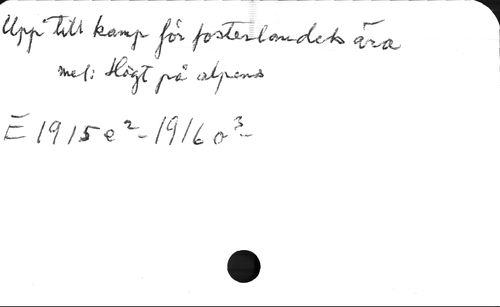 Upp till kamp för fosterlandets ära
mel: Högt på alpens
E 1915 e²-1916 o³-